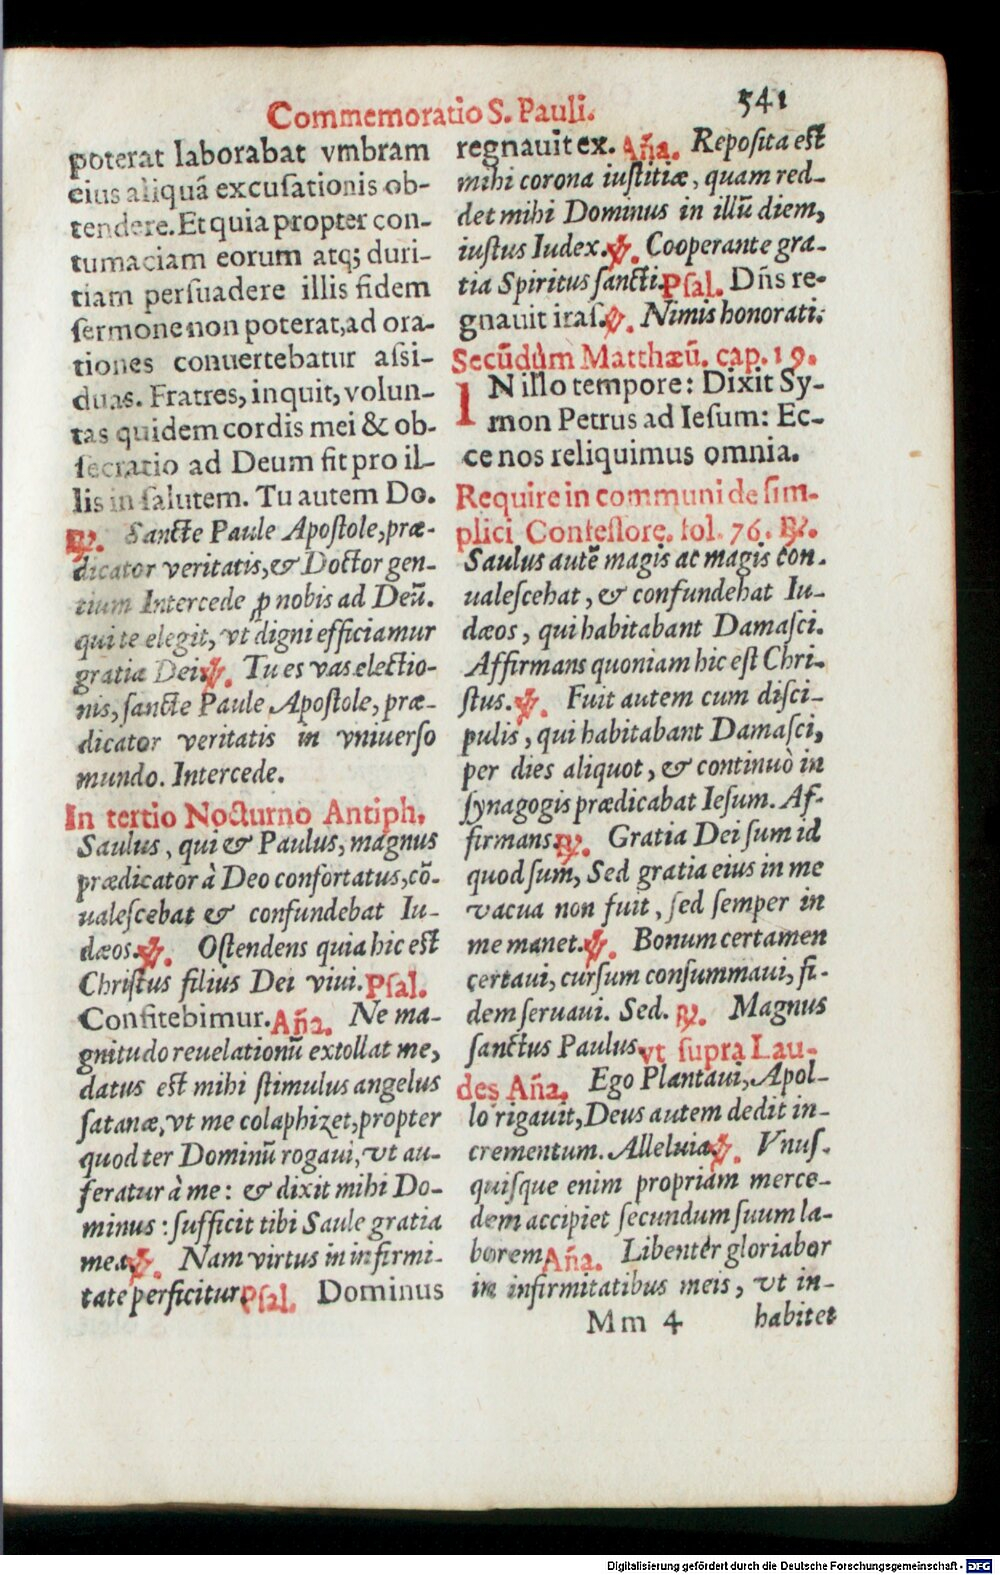 Commemoratio S. Pauli. 541
poterat laborabat vmbram
eius aliquā excusationis ob-
tendere. Et quia propter con-
tumaciam eorum atq; duri-
tiam persuadere illis fidem
sermone non poterat, ad ora-
tiones conuertebatur assi-
duas. Fratres, inquit, volun-
tas quidem cordis mei & ob-
secratio ad Deum fit pro il-
lis in salutem. Tu autem Do.
℟. Sancte Paule Apostole, præ-
dicator veritatis, & Doctor gen-
tium Intercede ꝓ nobis ad Deū.
qui te elegit, vt digni efficiamur
gratia Dei ℣. Tu es vas electio-
nis, sancte Paule Apostole, præ-
dicator veritatis in vniuerso
mundo. Intercede.
In tertio Nocturno Antiph.
Saulus, qui & Paulus, magnus
prædicator à Deo confortatus, cō-
ualescebat & confundebat Iu-
dæos. ℣. Ostendens quia hic est
Christus filius Dei viui. Psal.
Confitebimur. Aña. Ne ma-
gnitudo reuelationū extollat me,
datus est mihi stimulus angelus
satanæ, vt me colaphizet, propter
quod ter Dominū rogaui, vt au-
feratur à me: & dixit mihi Do-
minus: sufficit tibi Saule gratia
mea. ℣. Nam virtus in infirmi-
tate perficitur. Psal. Dominus
regnauit ex. Aña. Reposita est
mihi corona iustitiæ, quam red-
det mihi Dominus in illū diem,
iustus Iudex. ℣. Cooperante gra-
tia Spiritus sancti. Psal. Dñs re-
gnauit iras. ℣. Nimis honorati.
Secūdùm Matthæū. cap. 19.
IN illo tempore: Dixit Sy-
mon Petrus ad Iesum: Ec-
ce nos reliquimus omnia.
Require in communi de sim-
plici Confessore. fol. 76. ℟.
Saulus autē magis ac magis con-
ualescebat, & confundebat Iu-
dæos, qui habitabant Damasci.
Affirmans quoniam hic est Chri-
stus. ℣. Fuit autem cum disci-
pulis, qui habitabant Damasci,
per dies aliquot, & continuò in
synagogis prædicabat Iesum. Af-
firmans. ℟. Gratia Dei sum id
quod sum, Sed gratia eius in me
vacua non fuit, sed semper in
me manet. ℣. Bonum certamen
certaui, cursum consummaui, fi-
dem seruaui. Sed. ℟. Magnus
sanctus Paulus, vt supra Lau-
des Aña. Ego Plantaui, Apol-
lo rigauit, Deus autem dedit in-
crementum. Alleluia. ℣. Vnus-
quisque enim propriam merce-
dem accipiet secundum suum la-
borem Aña. Libenter gloriabor
in infirmitatibus meis, vt in-
Mm 4 habitet
Digitalisierung gefördert durch die Deutsche Forschungsgemeinschaft - DFG